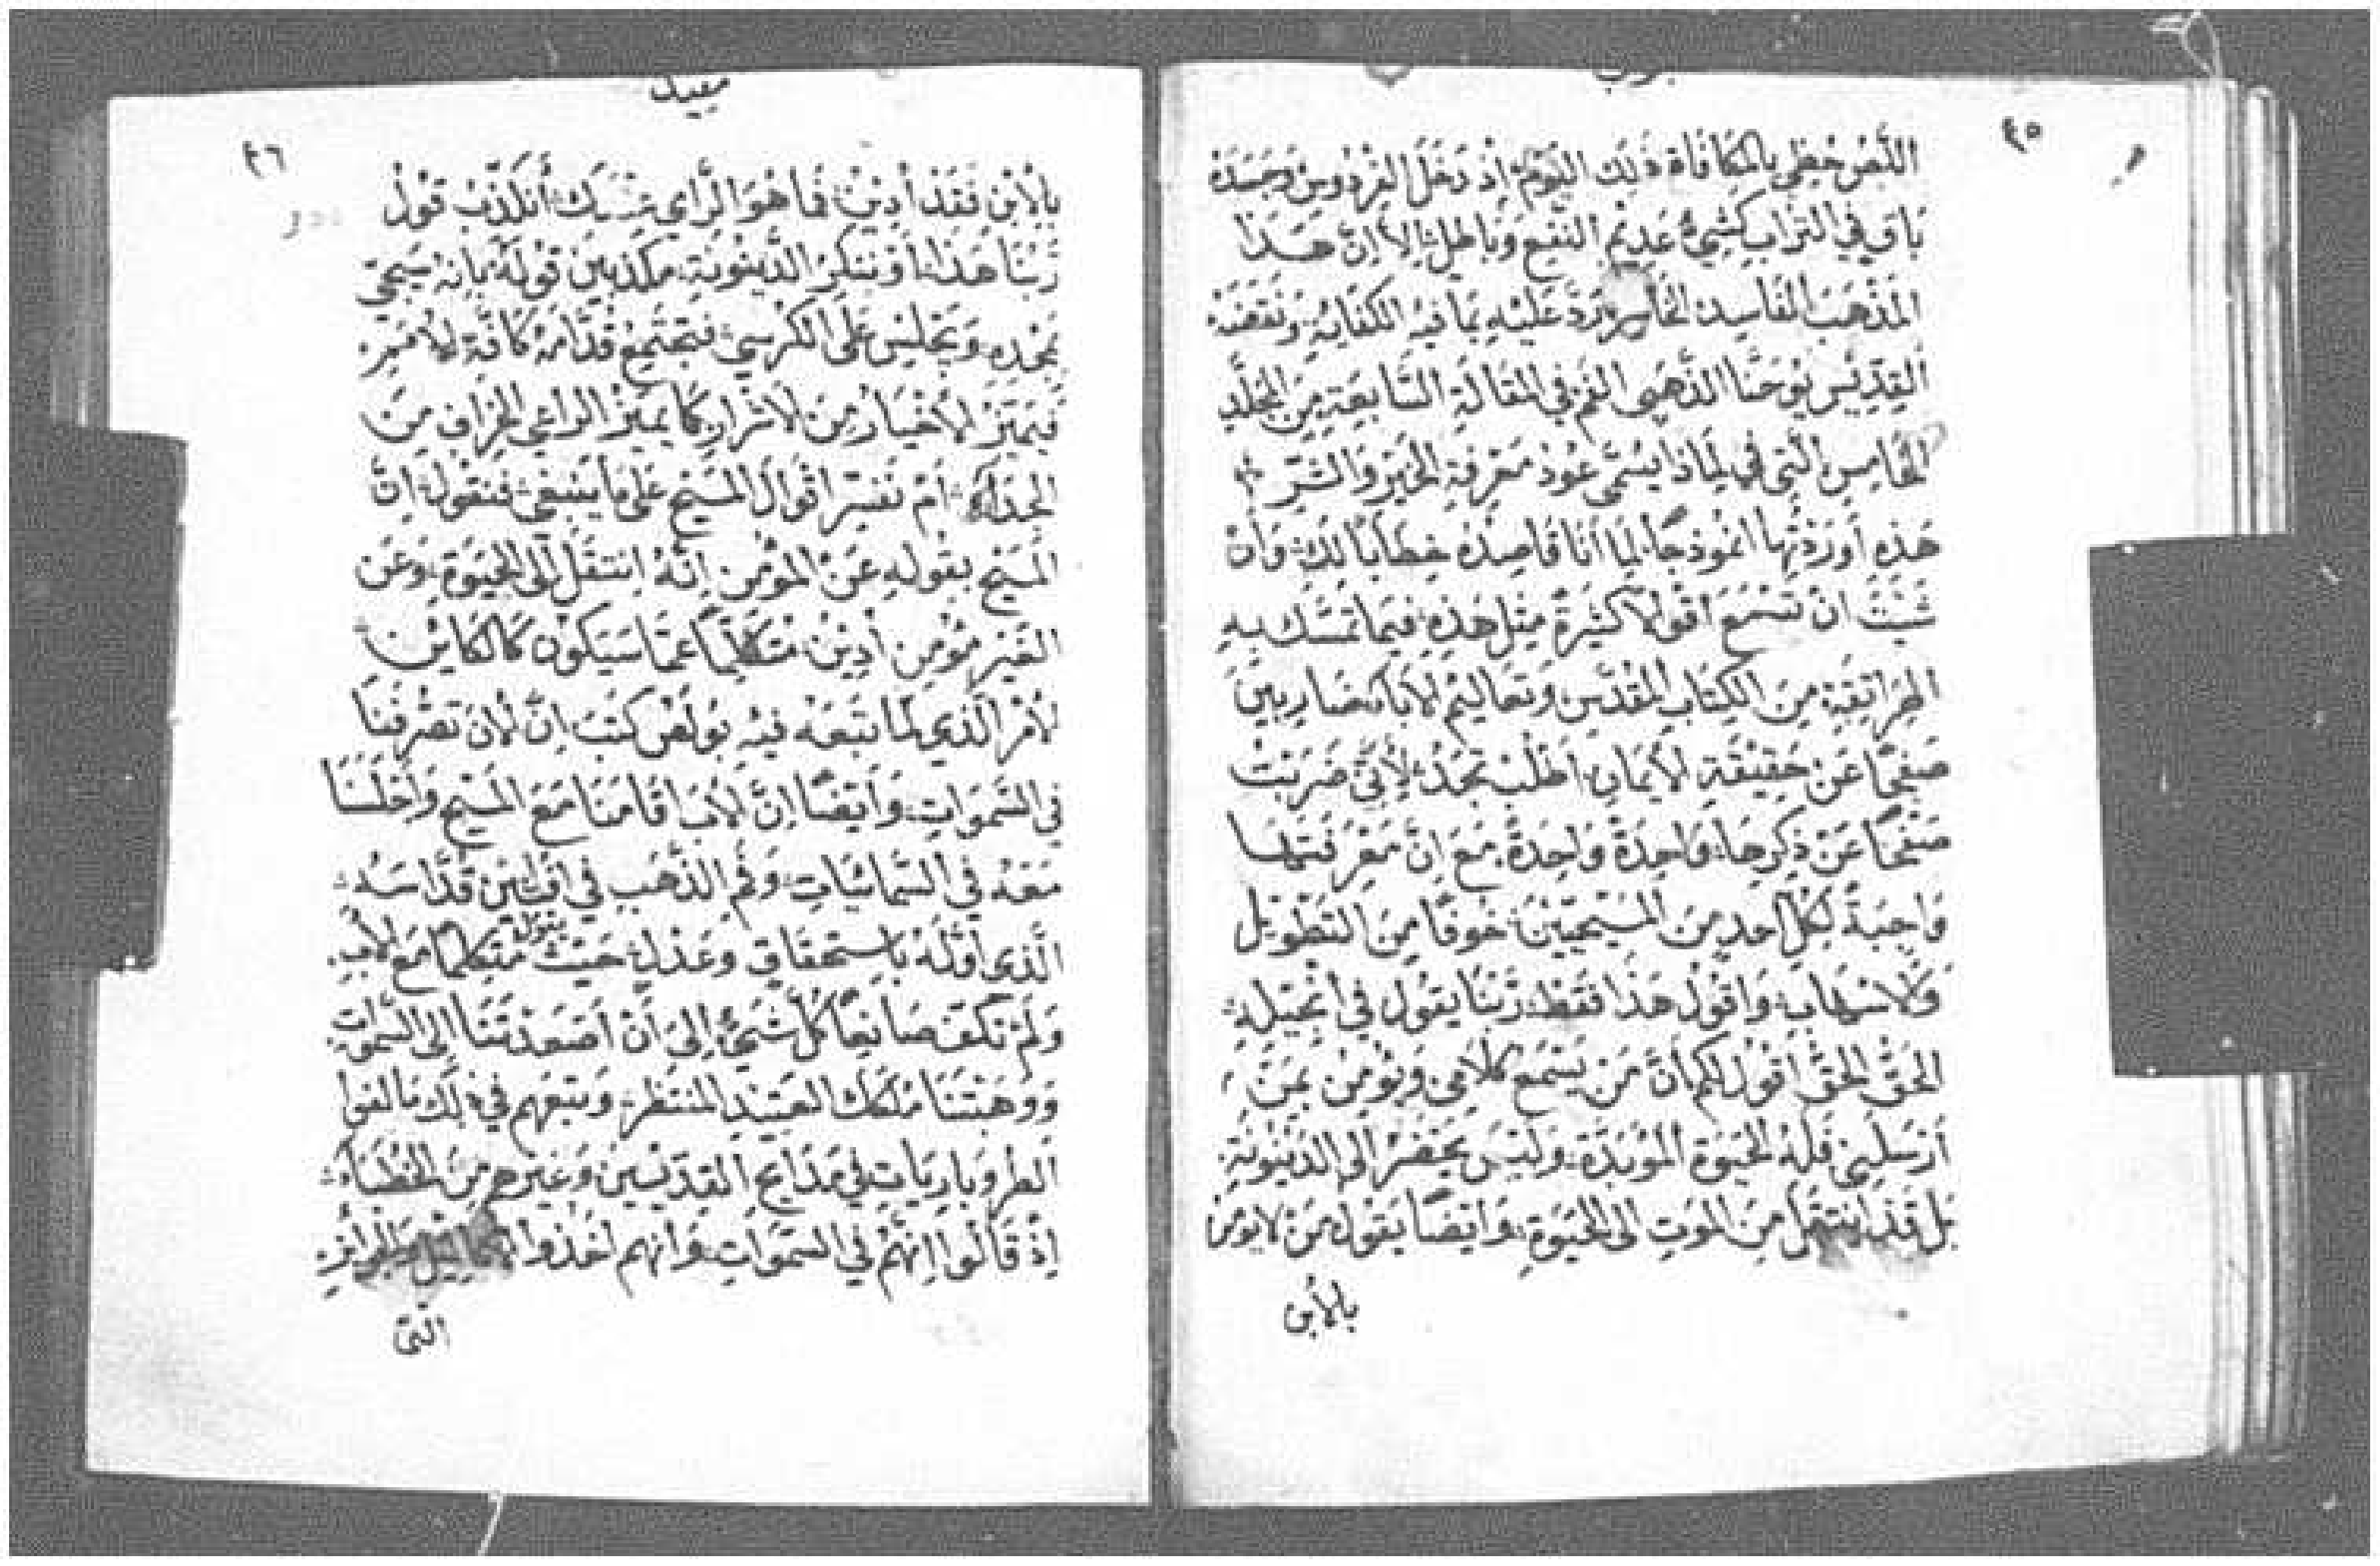 ٤٥
اللص حظي بالمكافاة ذلك اليوم اذ دخل الفردوس وجسده
باق في التراب كشيء عديم النفع وباطل الا ان هذا
المذهب الفاسد الخاسر رد عليه بما فيه الكفاية ونقضه
القديس يوحنا الذهبي الفم في المقالة السابعة من المجلد
الخامس التي في لماذا يسمى عود معرفة الخير والشر
هذه أوردتها انموذجا لما أنا قاصده خطابا لك وان
شئت ان تسمع اقوالا كثيرة مثل هذه فيما تمسك به
الهراتقة من الكتاب المقدس وتعاليم الاباء ضاربين
صفحًا عن حقيقة الأيمان اطلب تجد لأنّي ضربت
صفحًا عن ذكرها واحدة واحدة مع ان معرفتها
واجبة لكل احد من المسيحيين خوفًا من التطويل
والاسهاب واقول هذا فقط ربّنا يقول في انجيله
الحق الحق أقول لكم أن من يسمع كلامي ويومن بمن
أرسلني فله الحيوة الموبدة وليس يحضر الى الدينونة
بل قد انتقل من الموت الى الحيوة وايضًا يقول من لا يومن
بالأبن
معيد
٤٦
بالأبن فقد أدين فما هو الرأي عندك أنكذب قول
ربنا هذا أو ننكر الدينونة مكذبين قوله بانه سيجي
بمجده ويجلس على الكرسي فتجتمع قدامه كافة الامم
فيميز الأخيار من الاشرار كما يميز الراعي الخراف من
الجداء أم نفسر اقوال المسيح على ما ينبغي فنقول ان
المسيح بقوله عن المؤمن إنه انتقل الى الحيوة وعن
الغير مؤمن أدين متكلمًا عما سيكون كالكاين
الأمر الذي لما تبعه فيه بولص كتب ان الان تصرفنا
في السموات وأيضًا ان الاب اقامنا مع المسيح واجلسنا
معه في السمائيات وفم الذهب في افشين قداسه
الذي أوله باستحقاق وعدل حيث يقول متكلمًا مع الأب
ولم تكف صانعًا كل شيء إلى أن أصعدتنا إلى السموات
ووهبتنا ملكك العتيد المنتظر ويتبعهم في ذلك مالفوا
الطروباريات في مدايح القديسين وغيرهم من الخطباء
إذ قالوا إنهم في السموات وانهم اخذوا
التي